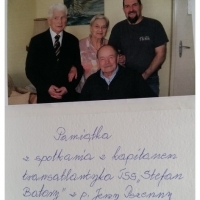 Pamiątka
z spotkania z kapitanem
transatlantyka TSS „Stefan
Batory" – p.